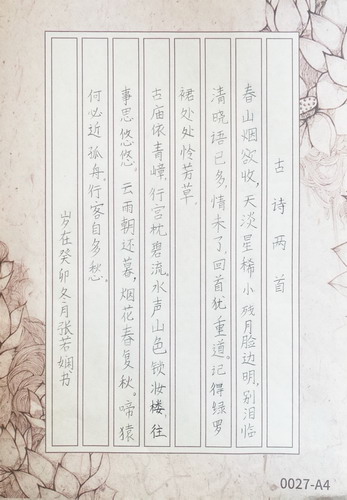 古诗两首
春山烟欲收，天淡星稀小残月脸边明，别泪临
清晓语已多，情未了，回首犹重道。记得绿罗
裙处处怜芳草。
古庙依青嶂，行宫枕碧流，水声山色锁妆楼，往
事思悠悠。云雨朝还暮，烟花春复秋。啼猿
何必近孤舟，行客自多愁。
岁在癸卯冬月张若娴书
0027-A4